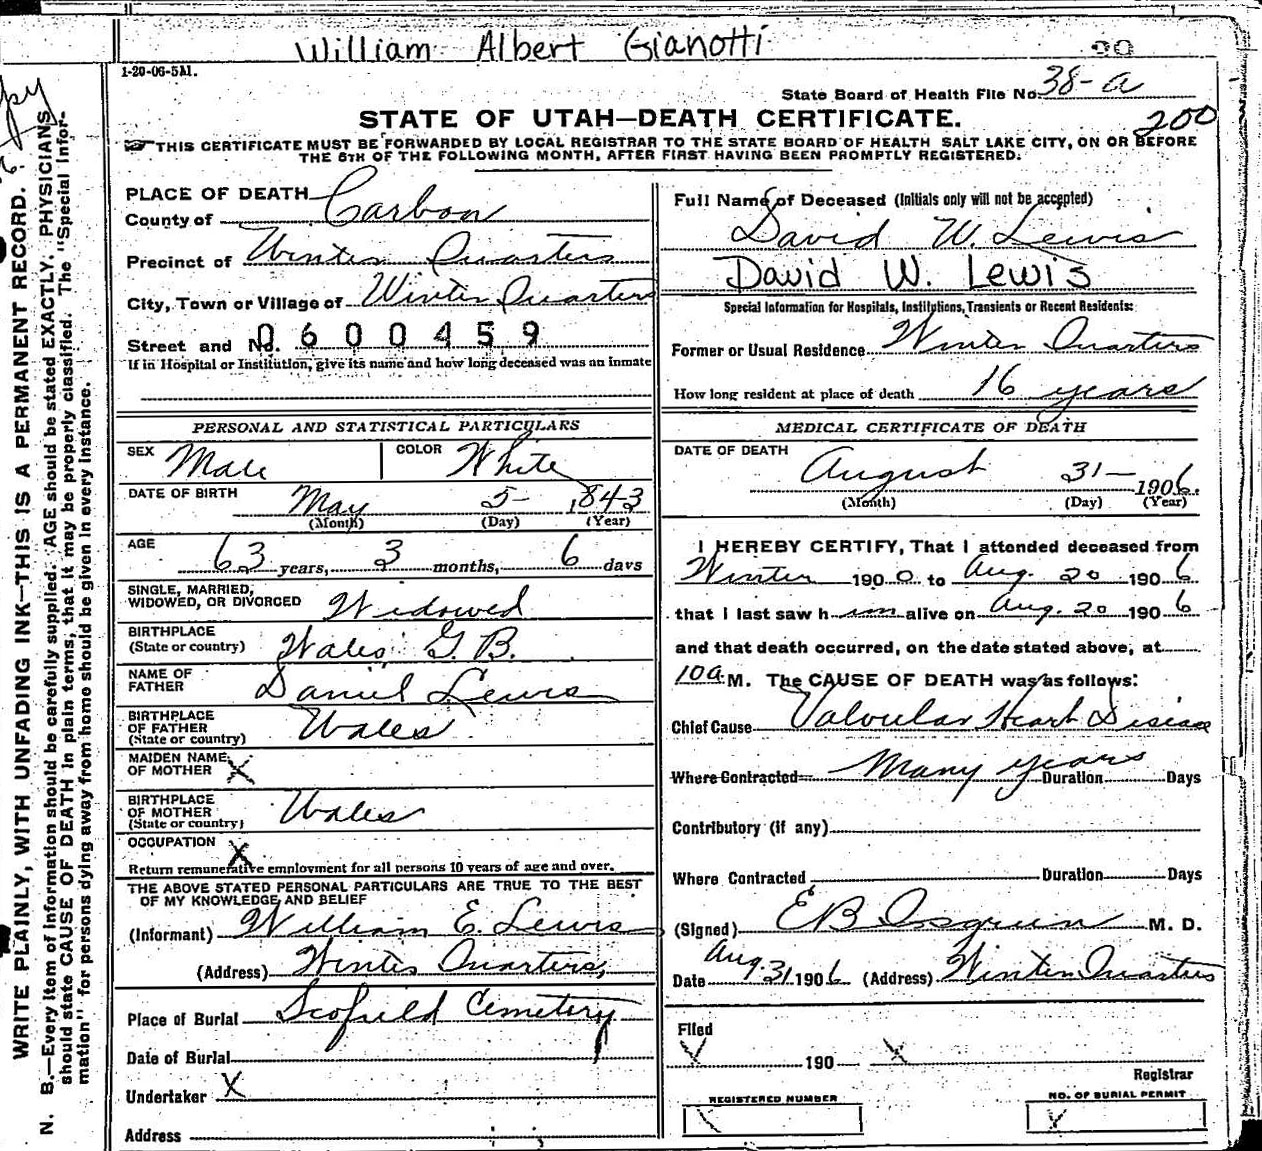 William Albert Gianotti
1-20-06-5M.
State Board of Health File No. 38-a
200
STATE OF UTAH—DEATH CERTIFICATE.
THIS CERTIFICATE MUST BE FORWARDED BY LOCAL REGISTRAR TO THE STATE BOARD OF HEALTH SALT LAKE CITY, ON OR BEFORE
THE 5TH OF THE FOLLOWING MONTH, AFTER FIRST HAVING BEEN PROMPTLY REGISTERED.
WRITE PLAINLY, WITH UNFADING INK—THIS IS A PERMANENT RECORD.
N. B.—Every item of information should be carefully supplied. AGE should be stated EXACTLY. PHYSICIANS
should state CAUSE OF DEATH in plain terms, that it may be properly classified. The "Special Infor-
mation" for persons dying away from home should be given in every instance.
PLACE OF DEATH
County of Carbon
Precinct of Winter Quarters
City, Town or Village of Winter Quarters
Street and No. 0600459
If in Hospital or Institution, give its name and how long deceased was an inmate
PERSONAL AND STATISTICAL PARTICULARS
SEX Male COLOR White
DATE OF BIRTH May 5- 1843
(Month) (Day) (Year)
AGE 63 years, 3 months, 6 days
SINGLE, MARRIED,
WIDOWED, OR DIVORCED Widowed
BIRTHPLACE
(State or country) Wales G. B.
NAME OF
FATHER Daniel Lewis
BIRTHPLACE
OF FATHER
(State or country) Wales
MAIDEN NAME
OF MOTHER X
BIRTHPLACE
OF MOTHER
(State or country) Wales
OCCUPATION X
Return remunerative employment for all persons 10 years of age and over.
THE ABOVE STATED PERSONAL PARTICULARS ARE TRUE TO THE BEST
OF MY KNOWLEDGE AND BELIEF
(Informant) William E. Lewis
(Address) Winter Quarters,
Place of Burial Scofield Cemetery
Date of Burial
Undertaker X
Address
Full Name of Deceased (Initials only will not be accepted)
David W. Lewis
David W. Lewis
Special Information for Hospitals, Institutions, Transients or Recent Residents:
Former or Usual Residence Winter Quarters
How long resident at place of death 16 years
MEDICAL CERTIFICATE OF DEATH
DATE OF DEATH August 31— 1906.
(Month) (Day) (Year)
I HEREBY CERTIFY, That I attended deceased from
Winter 1900 to Aug. 20 1906
that I last saw him alive on Aug. 20 1906
and that death occurred, on the date stated above, at
10 a. M. The CAUSE OF DEATH was as follows:
Chief Cause Valvular Heart Disease
Where Contracted Many years Duration Days
Contributory (if any)
Where Contracted Duration Days
(Signed) E B M. D.
Date Aug. 31 1906 (Address) Winter Quarters
Filed
X 190 X
Registrar
REGISTERED NUMBER
NO. OF BURIAL PERMIT